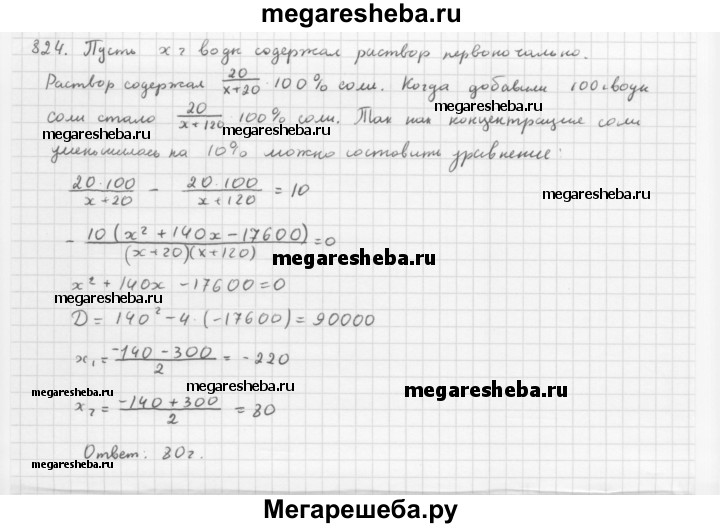 megaresheba.ru
824. Пусть x г воды содержал раствор первоначально.
Раствор содержал 20/(x+20) · 100% соли. Когда добавили 100г воды
соли стало 20/(x+120) · 100% соли. Так как концентрация соли
megaresheba.ru megaresheba.ru
уменьшилась на 10% можно составить уравнение:
20·100/(x+20) - 20·100/(x+120) = 10
megaresheba.ru
- 10(x² + 140x - 17600)/((x+20)(x+120)) = 0
megaresheba.ru
x² + 140x - 17600 = 0
megaresheba.ru
D = 140² - 4·(-17600) = 90000
x₁ = (-140 - 300)/2 = -220
megaresheba.ru megaresheba.ru megaresheba.ru
x₂ = (-140 + 300)/2 = 80
Ответ: 80г.
megaresheba.ru megaresheba.ru
Мегарешеба.ру